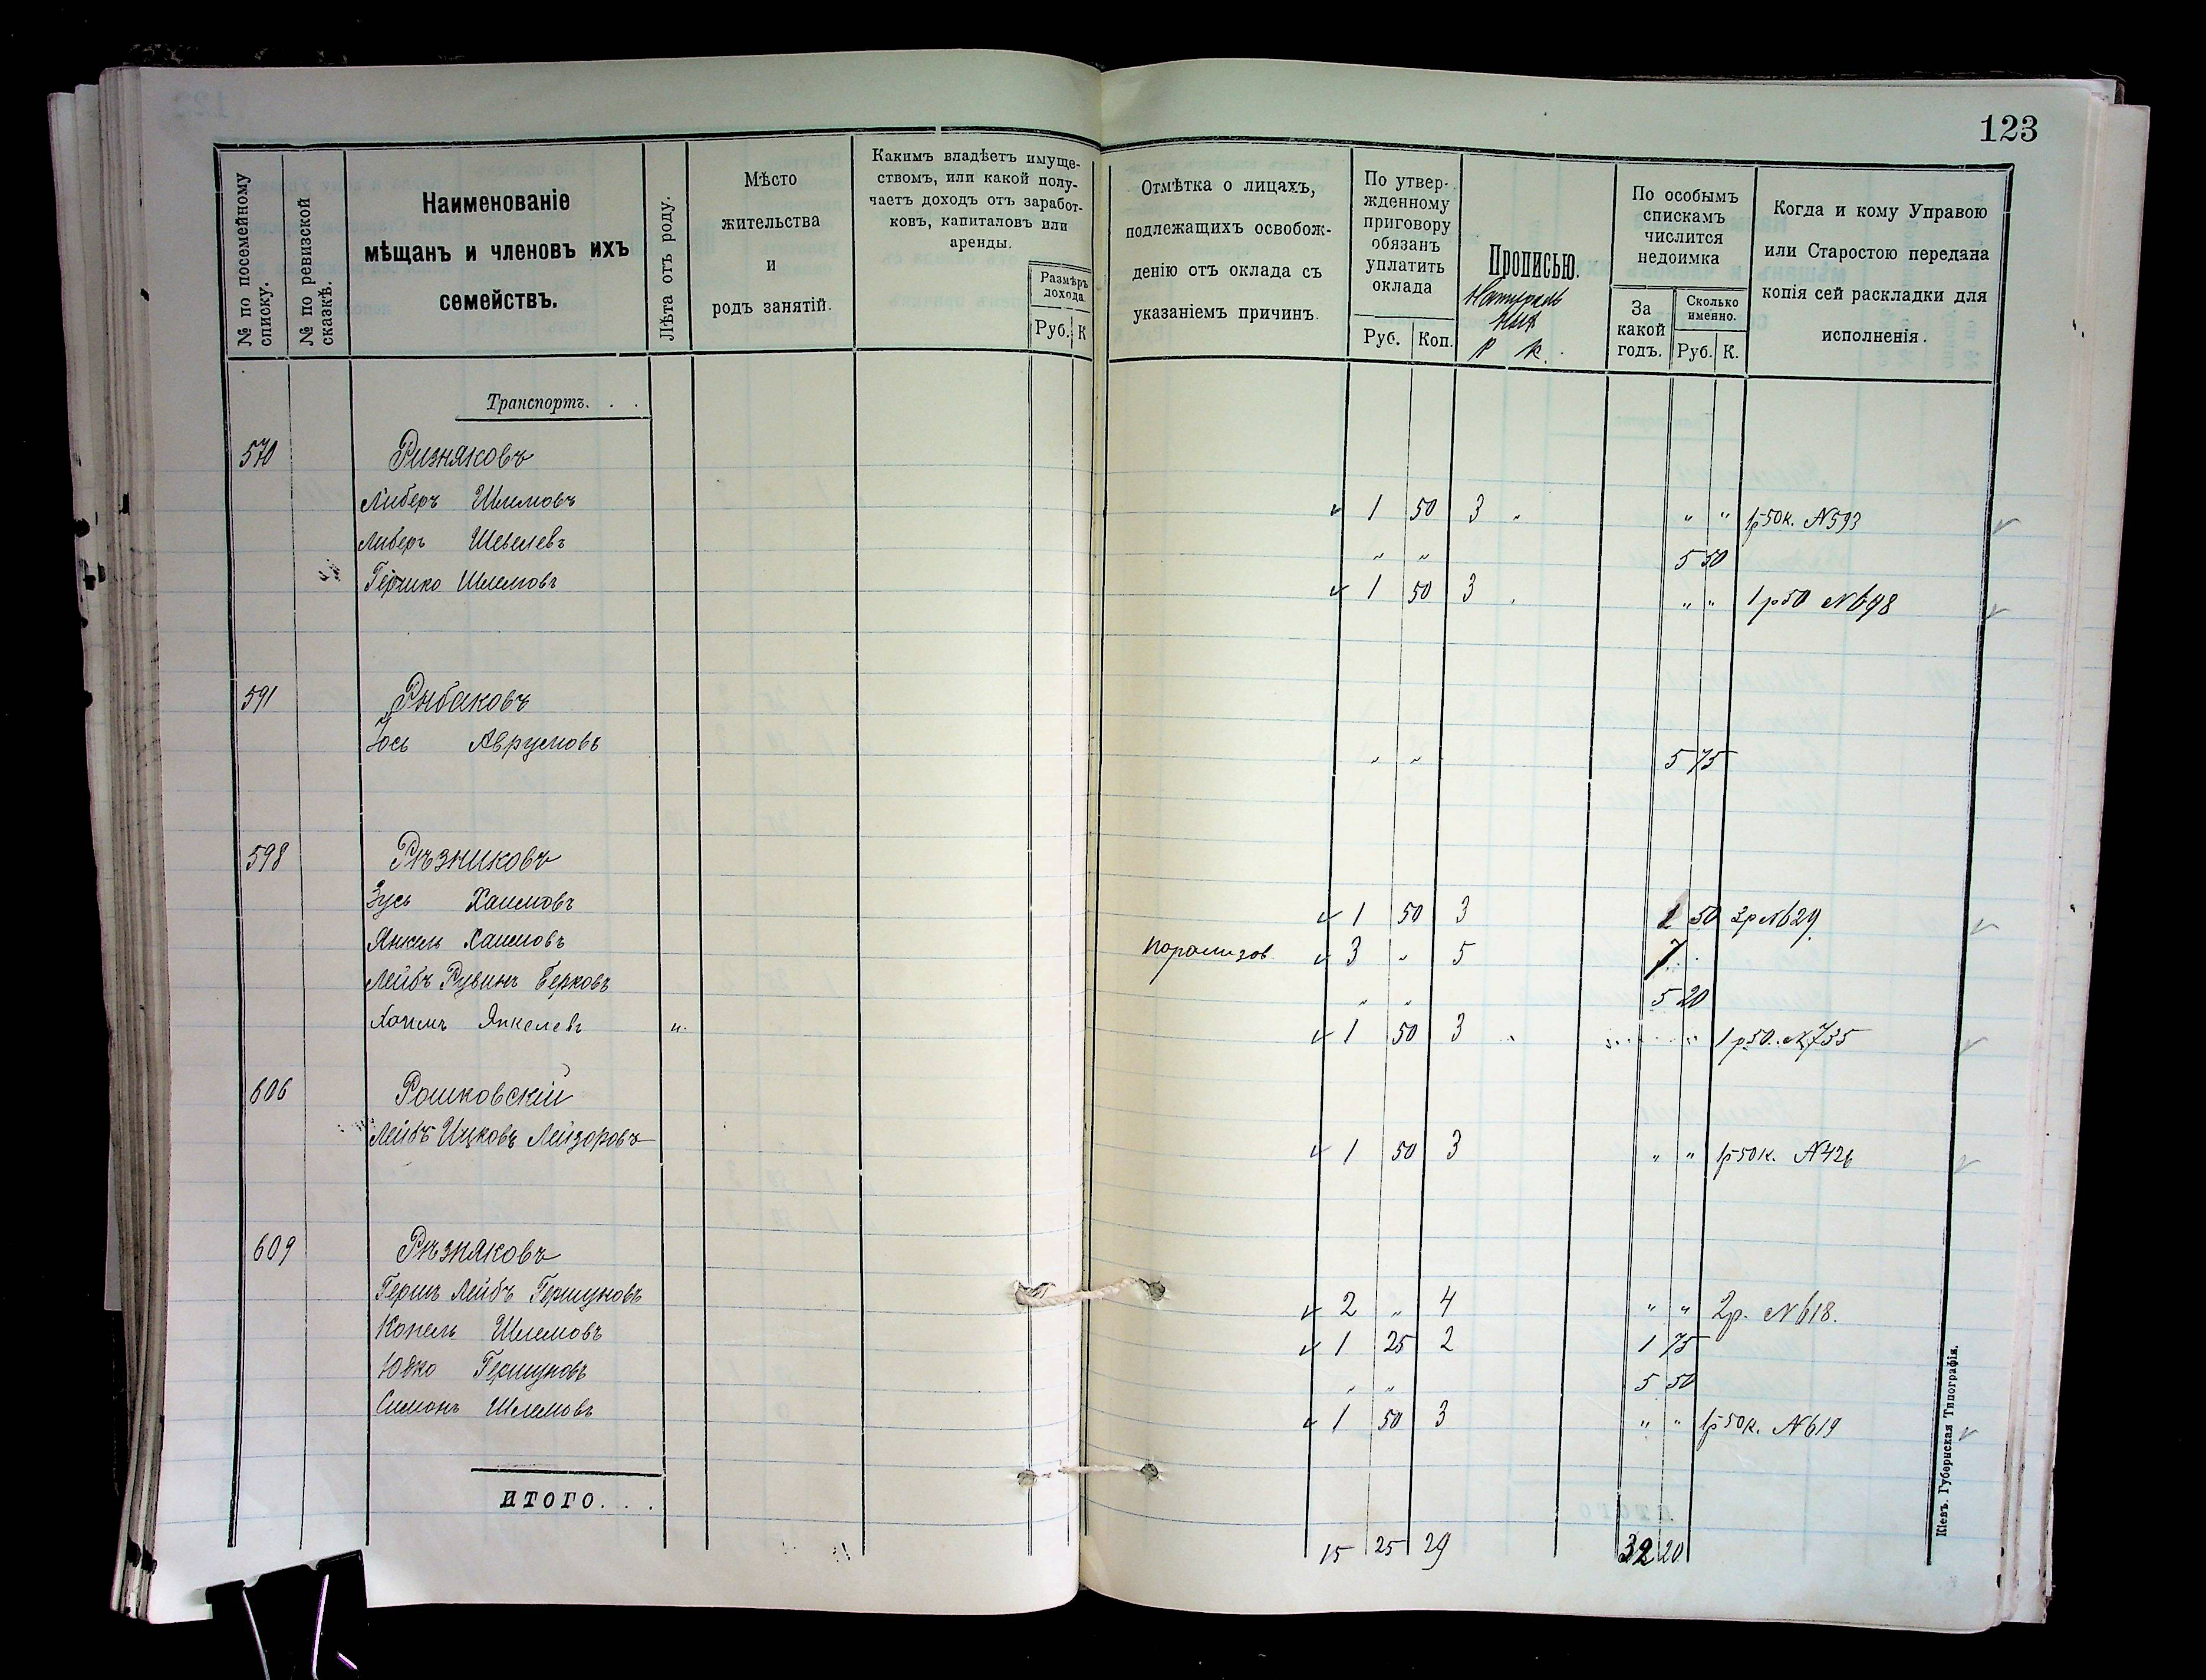 123
№ по посемейному списку.
№ по ревизской сказкѣ.
Наименованіе мѣщанъ и членовъ ихъ семействъ.
Лѣта отъ роду.
Мѣсто жительства и родъ занятій.
Какимъ владѣетъ имуществомъ, или какой получаетъ доходъ отъ заработковъ, капиталовъ или аренды.
Размѣръ дохода
Руб. К
Отмѣтка о лицахъ, подлежащихъ освобожденію отъ оклада съ указаніемъ причинъ.
По утвержденному приговору обязанъ уплатить оклада
Руб. Коп.
Прописью.
Р К.
По особымъ спискамъ числится недоимка
За какой годъ.
Сколько именно.
Руб. К.
Когда и кому Управою или Старостою передана копія сей раскладки для исполненія.
Транспортъ. . .
570 Ризняковъ
Либеръ Шлимовъ 1 50 3 „ „ „ 1р50к. №593
Либеръ Шевелевъ „ „ 5 50
Гершко Шлемовъ 1 50 3 „ „ „ 1р50 №698
591 Рыбаковъ
Іось Аврумовъ „ „ 5 75
598 Рѣзниковъ
Зусь Хаимовъ 1 50 3 50 3р №629.
Янкель Хаимовъ 3 „ 5 7
Лейбъ Рувинъ Берковъ „ „ 5 20
Хаимъ Янкелевъ 1 50 3 „ „ 1р50. №735
606 Рошковскій
Лейбъ Ицковъ Лейзоровъ 1 50 3 „ „ 1р50к. №426
609 Рѣзняковъ
Гершъ Лейбъ Гершуновъ 2 „ 4 „ „ 2р. №618.
Копель Шлемовъ 1 25 2 1 75
Юдко Гершуновъ „ „ 5 50
Симонъ Шлемовъ 1 50 3 „ „ 1р50к. №619
ИТОГО. . .
15 25 29 32 20
Кіевъ. Губернская Типографія.